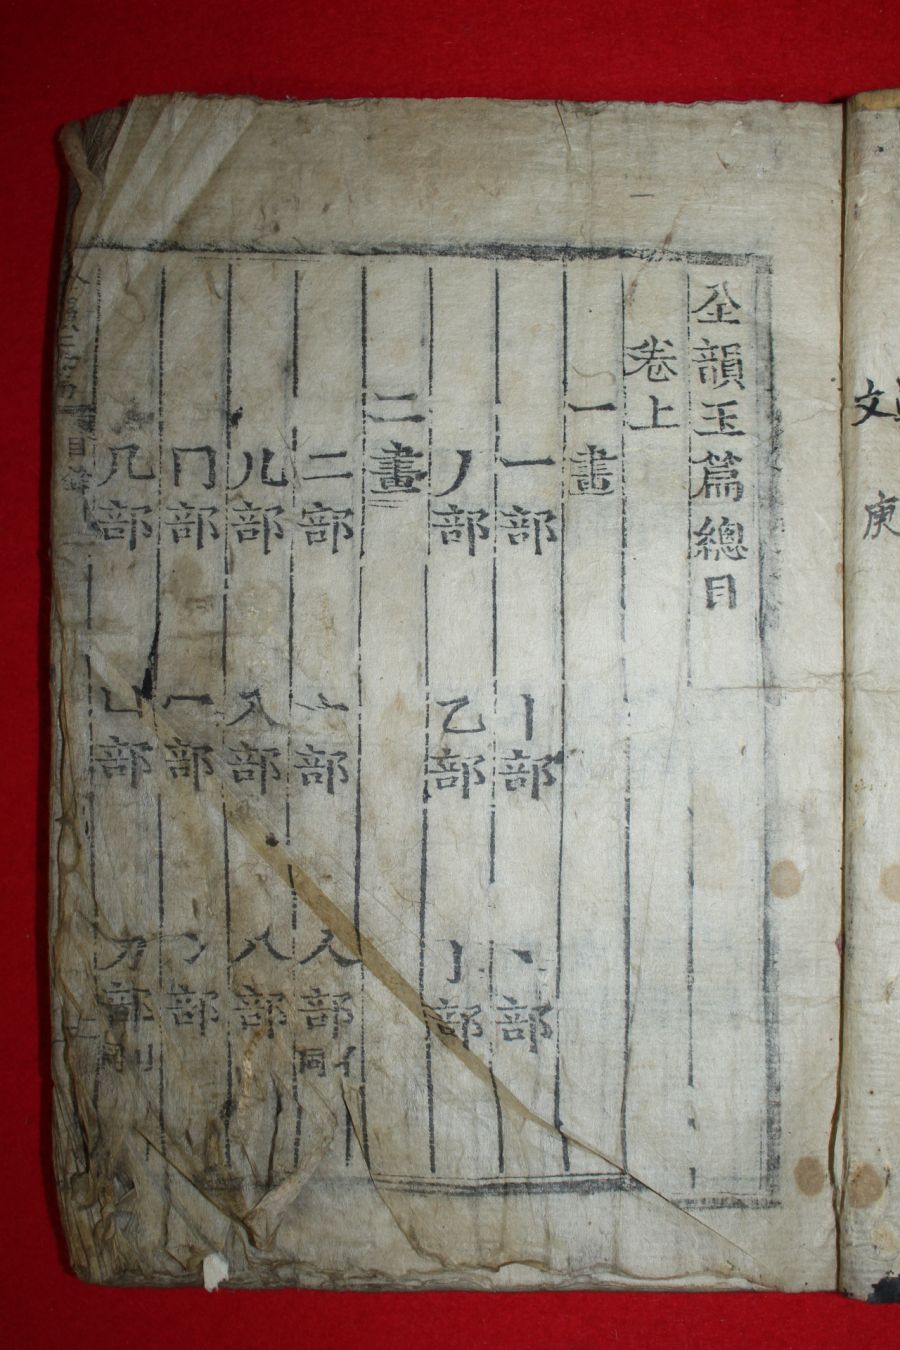 全韻玉篇總目
卷上
一畫
一部 丨部 丶部
丿部 乙部 亅部
二畫
二部 亠部 人部 亻同
儿部 入部 八部
冂部 冖部 冫部
几部 凵部 刀部 刂同
目錄 上
文
庚